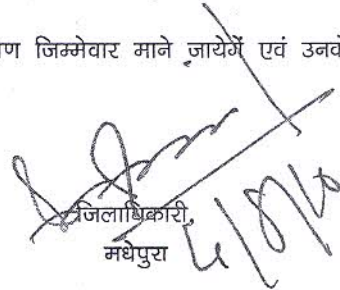 ण जिम्मेवार माने जायेगें एवं उनवे
जिलाधिकारी,
मधेपुरा